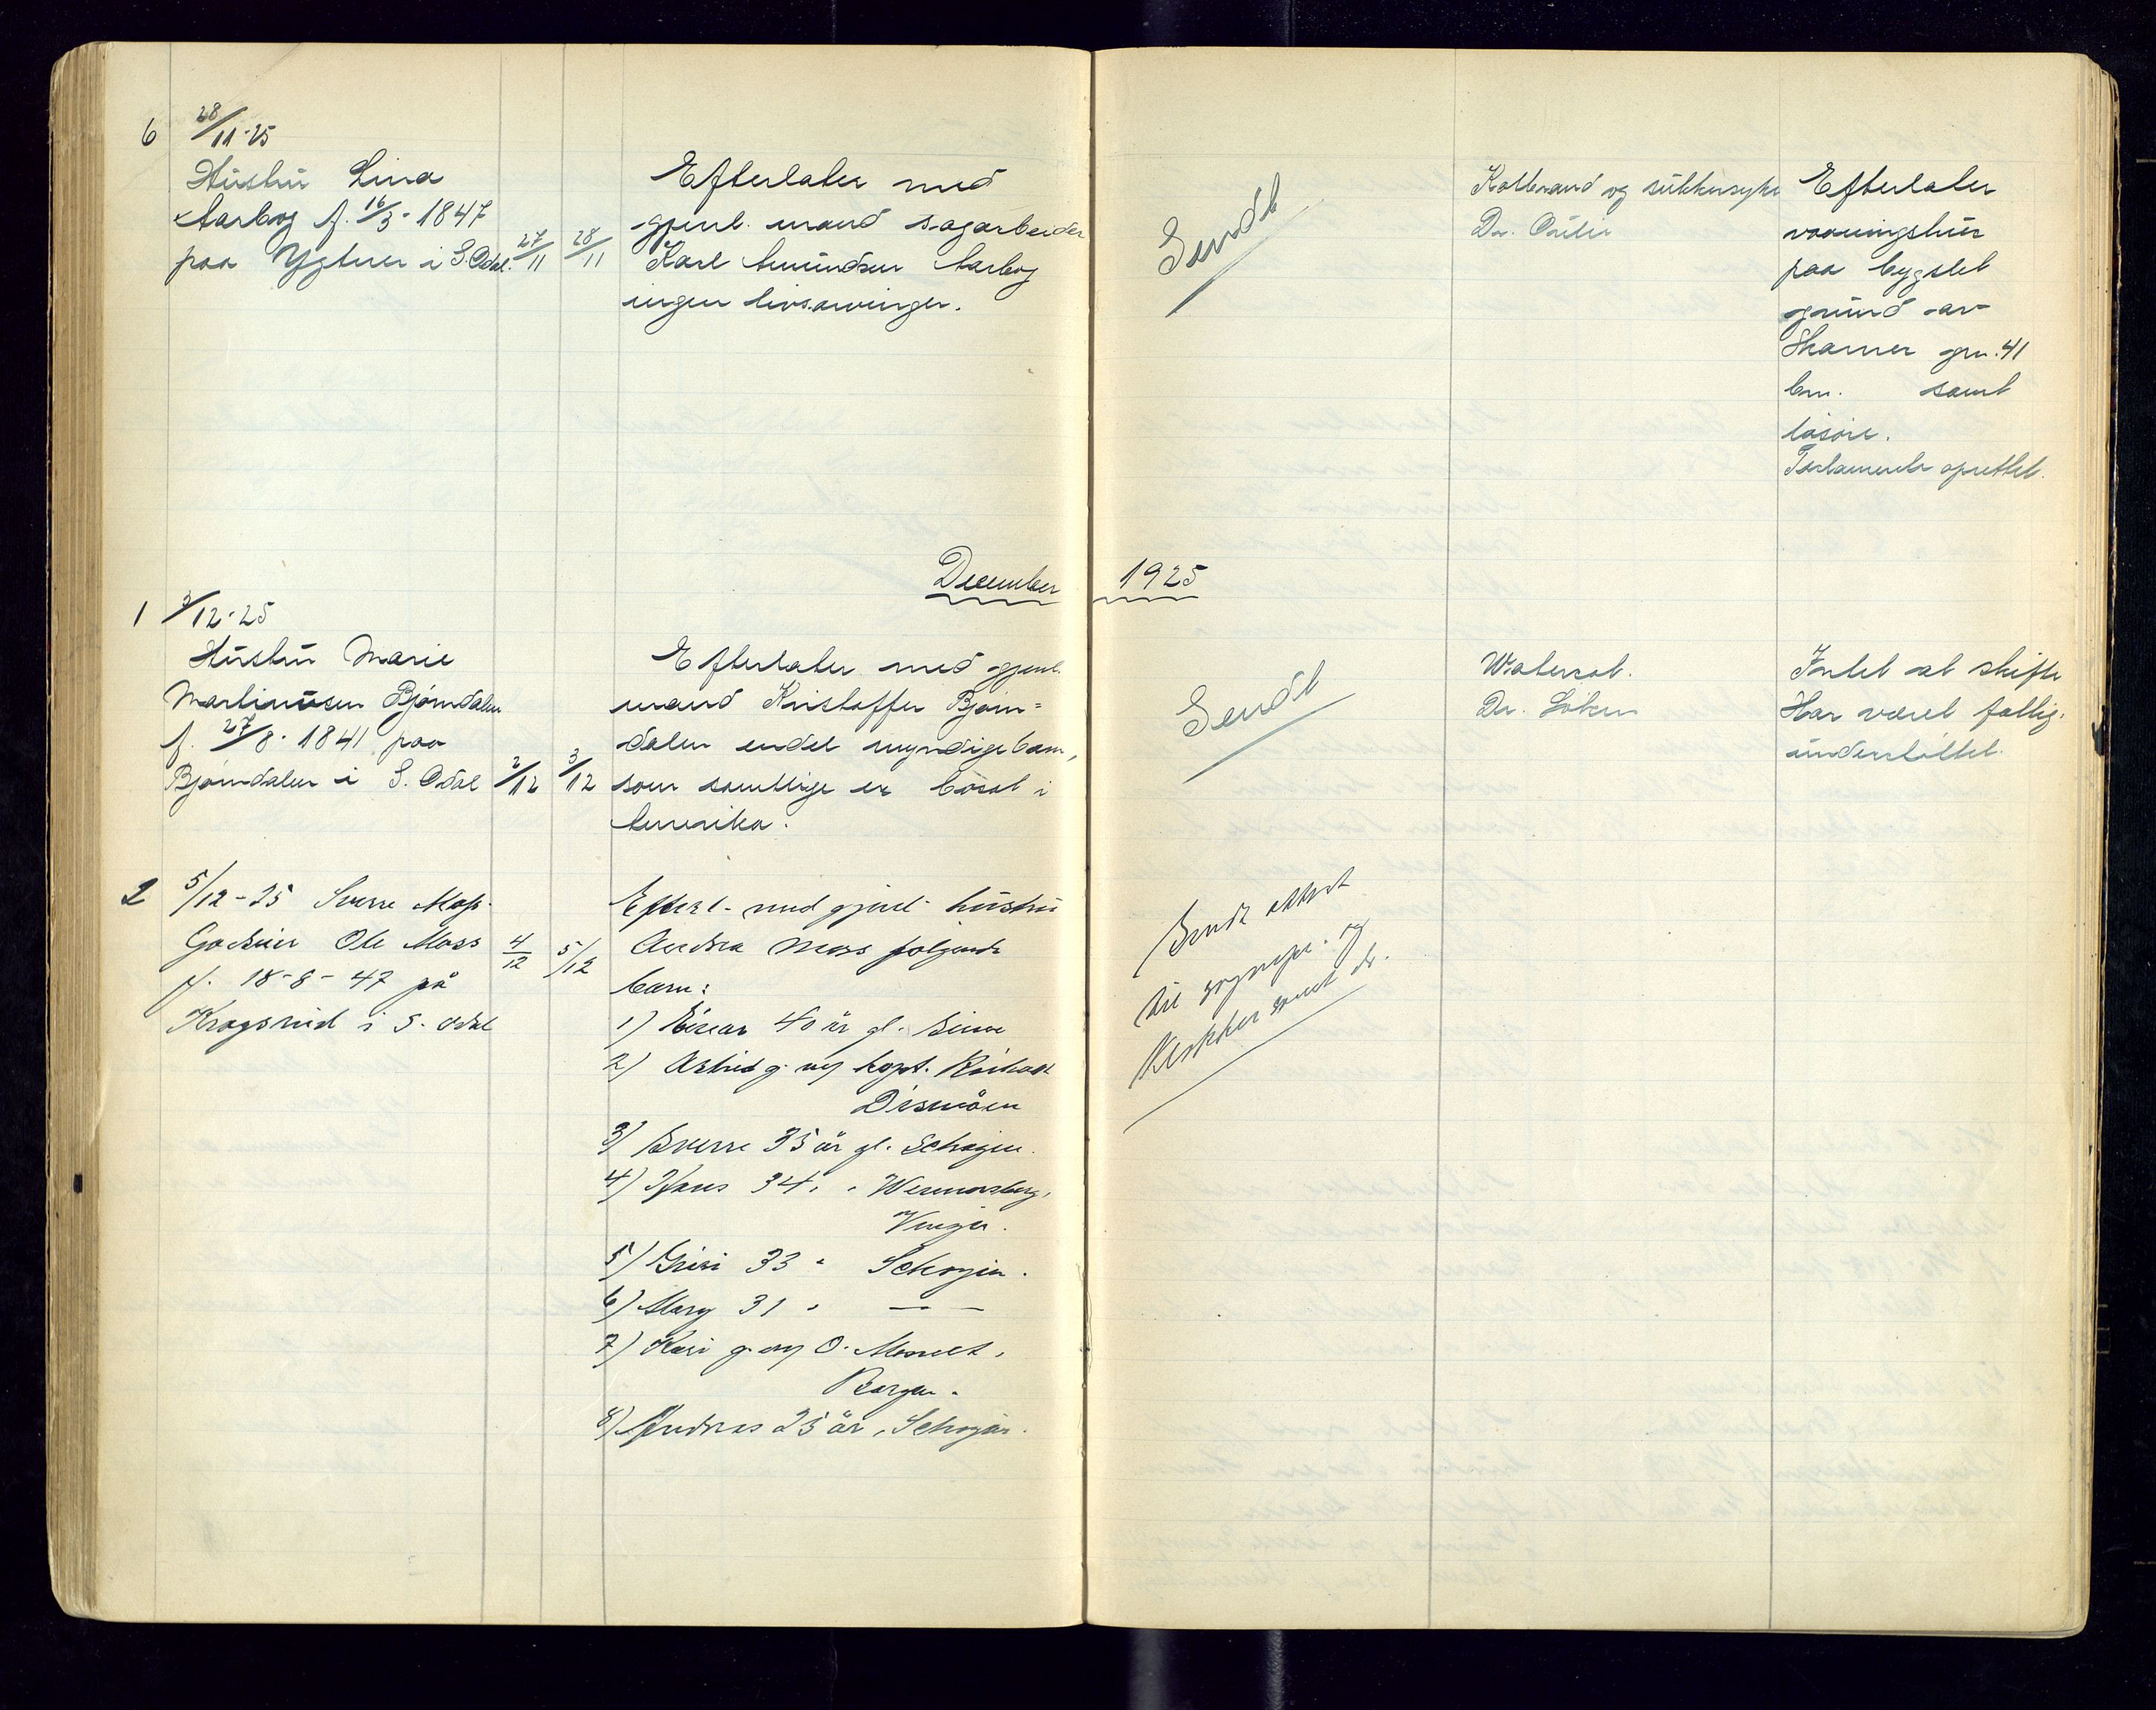 6 28/11-25
Hustru Lina
Aarbog f. 16/3-1847
paa Ygteren i S. Odal. 27/11 28/11
Efterlater med
gjenl. mand sagarbeider
Karl Amundsen Aarbog
ingen livsarvinger.
Sendt
Kolbrand og sukkersyke
Dr.
Efterlater
vaaningshus
paa bygslet
grund av
Skarner gn. 41
bn. samt
løsøre.
Testamente oprettet.
December 1925
1 3/12-25
Hustru Marie
Martinusen Bjørndalen
f. 27/8-1841 paa
Bjørndalen i S. Odal 2/12 3/12
Efterlater med gjenl.
mand Kristoffer Bjørn=
dalen endel myndige barn,
som samtlige er bosat i
Amerika.
Sendt
Watersot.
Dr. Løken
Intet at skifte
Har været fattig-
understøttet.
2 5/12-25 Sverre Moss.
Godseier Ole Moss 4/12 5/12
f. 18-8-47 på
Krogsrud i S. Odal
Efterl. med gjenl. hustru
Andrea Moss følgende
barn:
1) Einar 40 år gl.
2) Astrid g. m/ kapt. Richard
Dismåen
3) Sverre 35 år gl. Schøyen.
4) Hans 34 " " Wermorsberg,
Vinger.
5) Guri 33 " Schøyen.
6) Mary 31 " — —
7) Kari g. m/ O.
Bergen.
8) Andreas 25 år, Schøyen.
Sendt attest
til sognepr. og
klokker samt dr.